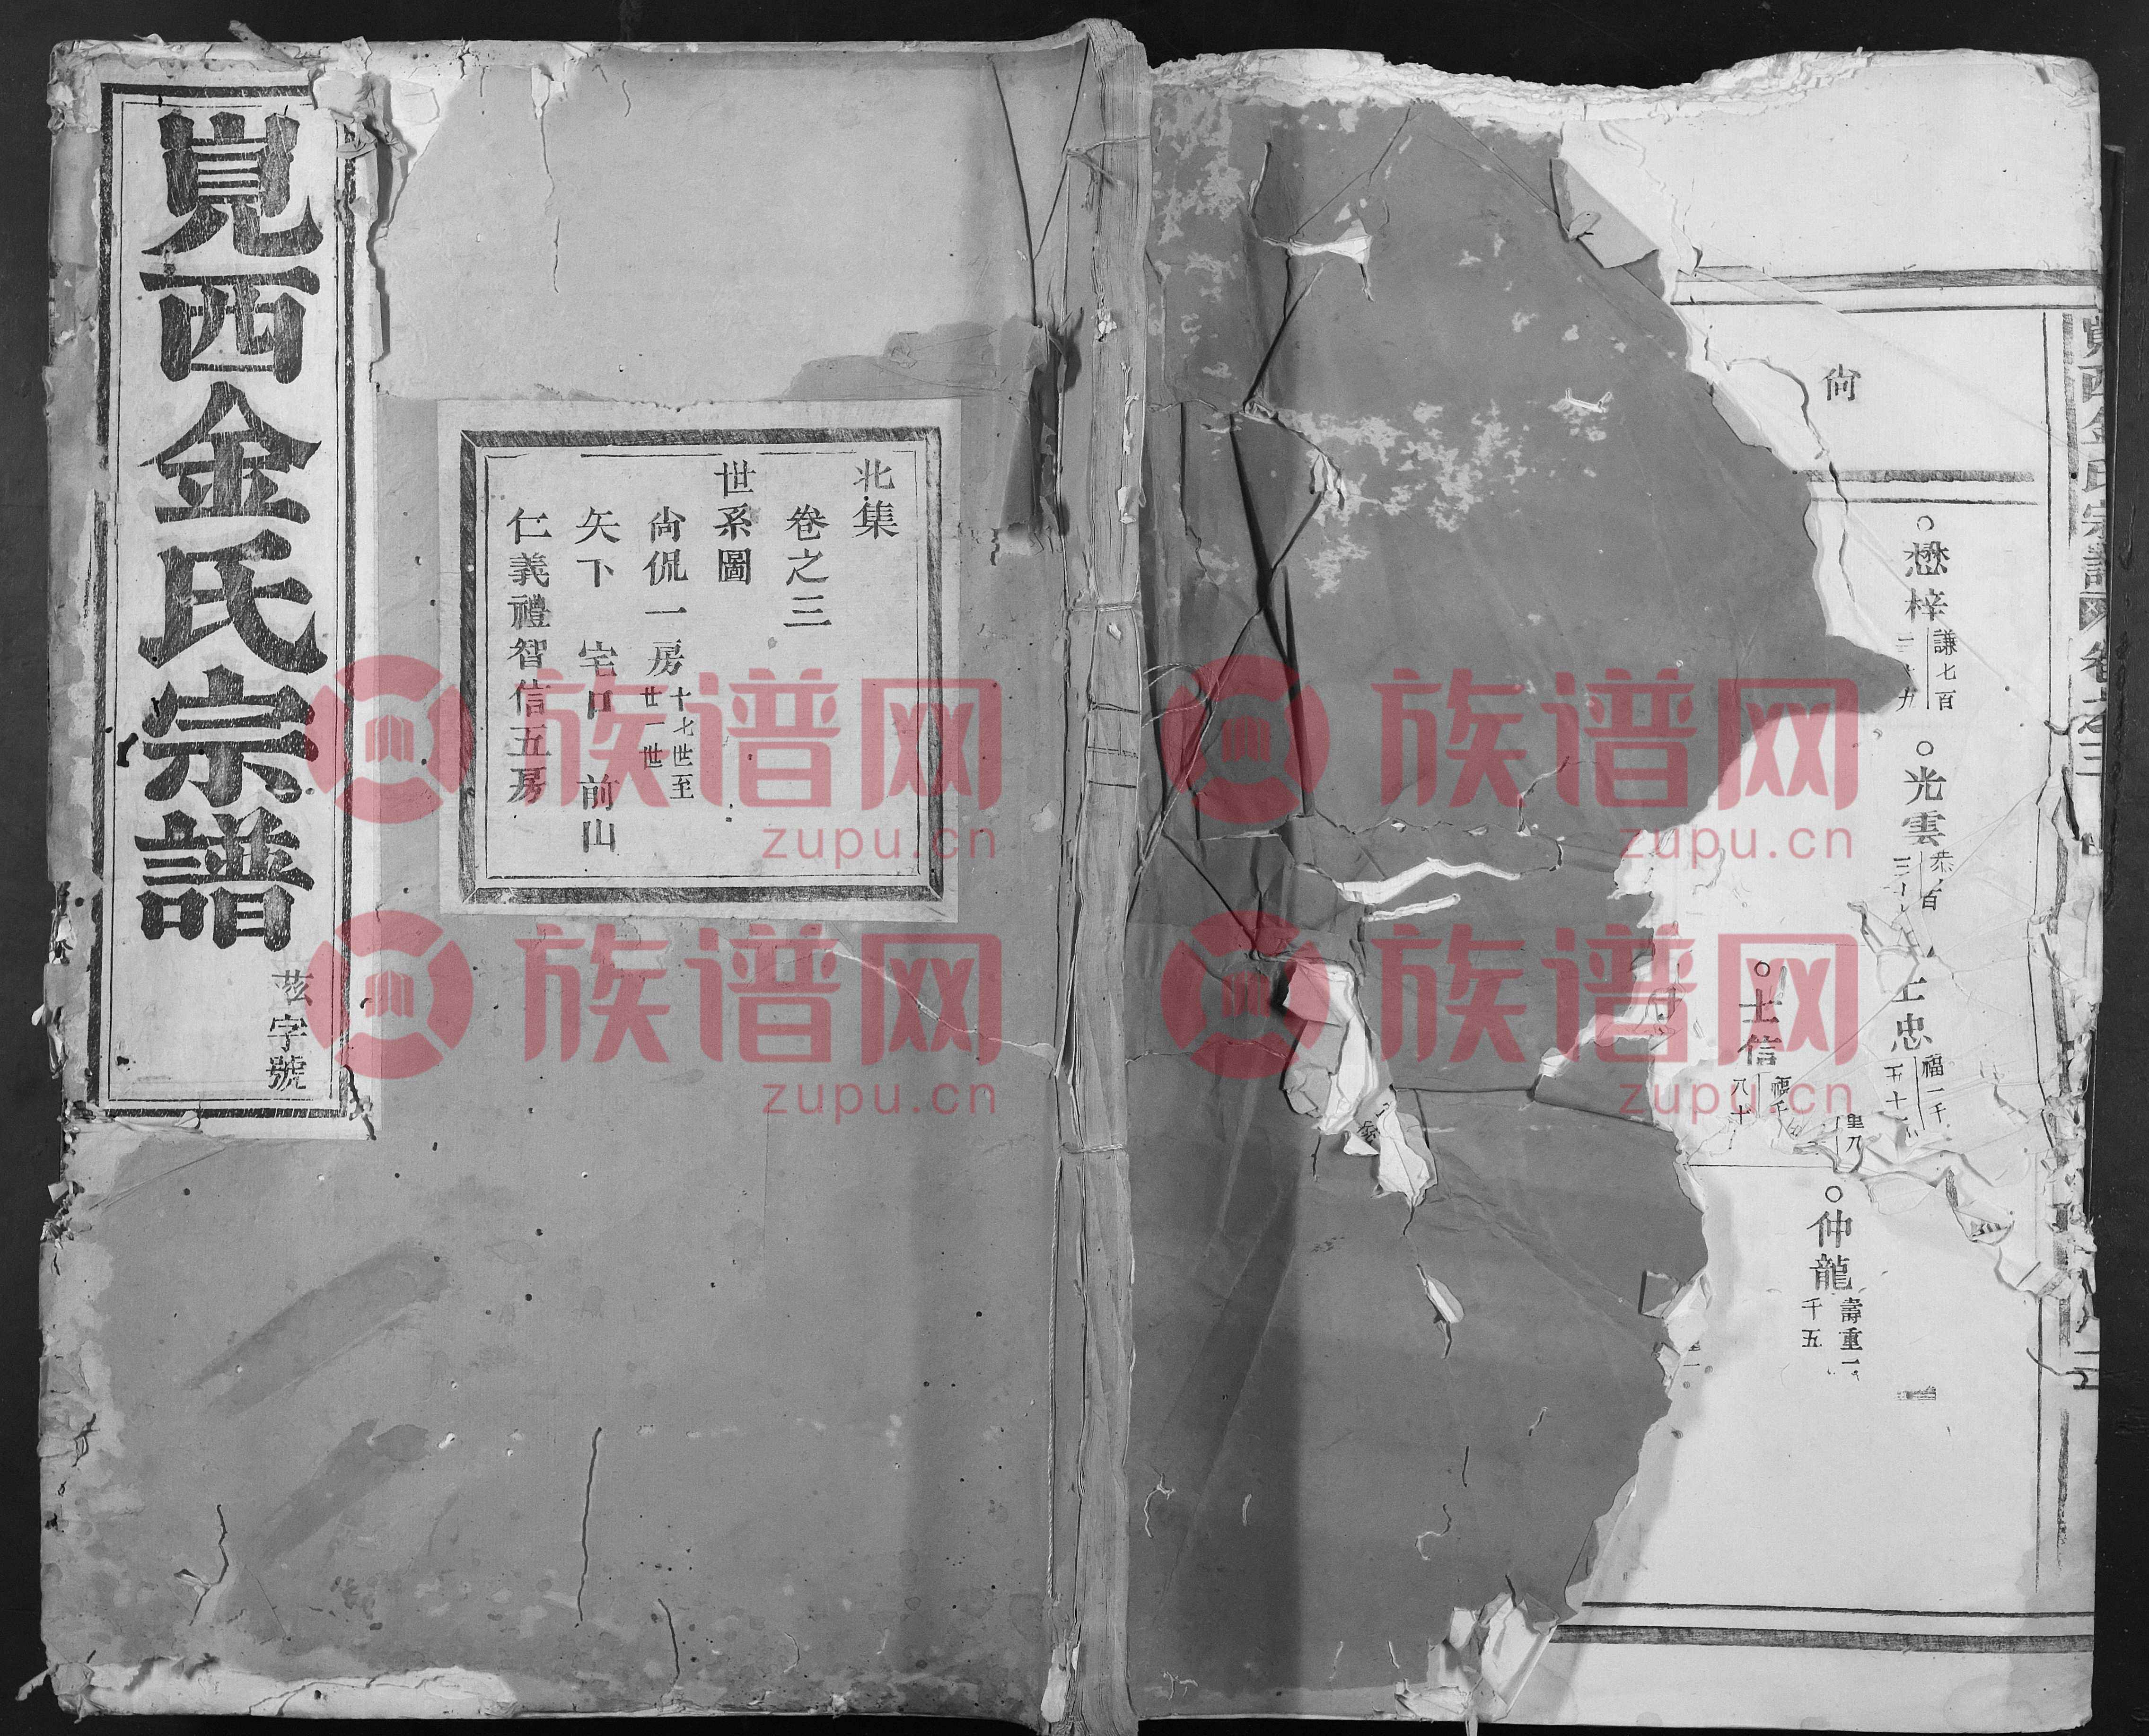 覓西金氏宗譜
茲字號
北集
卷之三
世系圖
尙侃一房 十七世至廿一世
矢下 宅口 前山
仁義禮智信五房
尙
懋梓
謙七百
光雲
士忠
福一千
五十
士信
福千
八十
仲龍
壽重一
千五
西金氏宗譜 卷之三
族谱网
zupu.cn
族谱网
zupu.cn
族谱网
zupu.cn
族谱网
zupu.cn